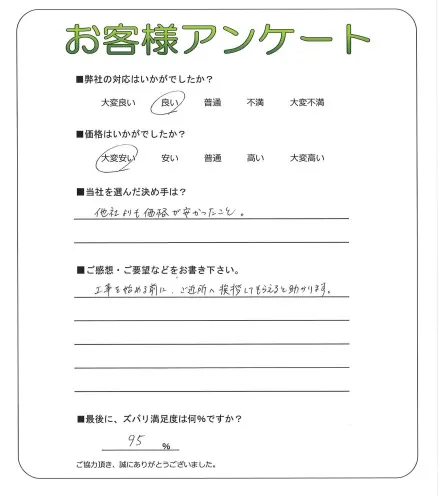 お客様アンケート
■弊社の対応はいかがでしたか？
大変良い 良い 普通 不満 大変不満
■価格はいかがでしたか？
大変安い 安い 普通 高い 大変高い
■当社を選んだ決め手は？
他社よりも価格が安かったこと。
■ご感想・ご要望などをお書き下さい。
工事を始める前に、ご近所へ挨拶してもらえると助かります。
■最後に、ズバリ満足度は何％ですか？
95 ％
ご協力頂き、誠にありがとうございました。